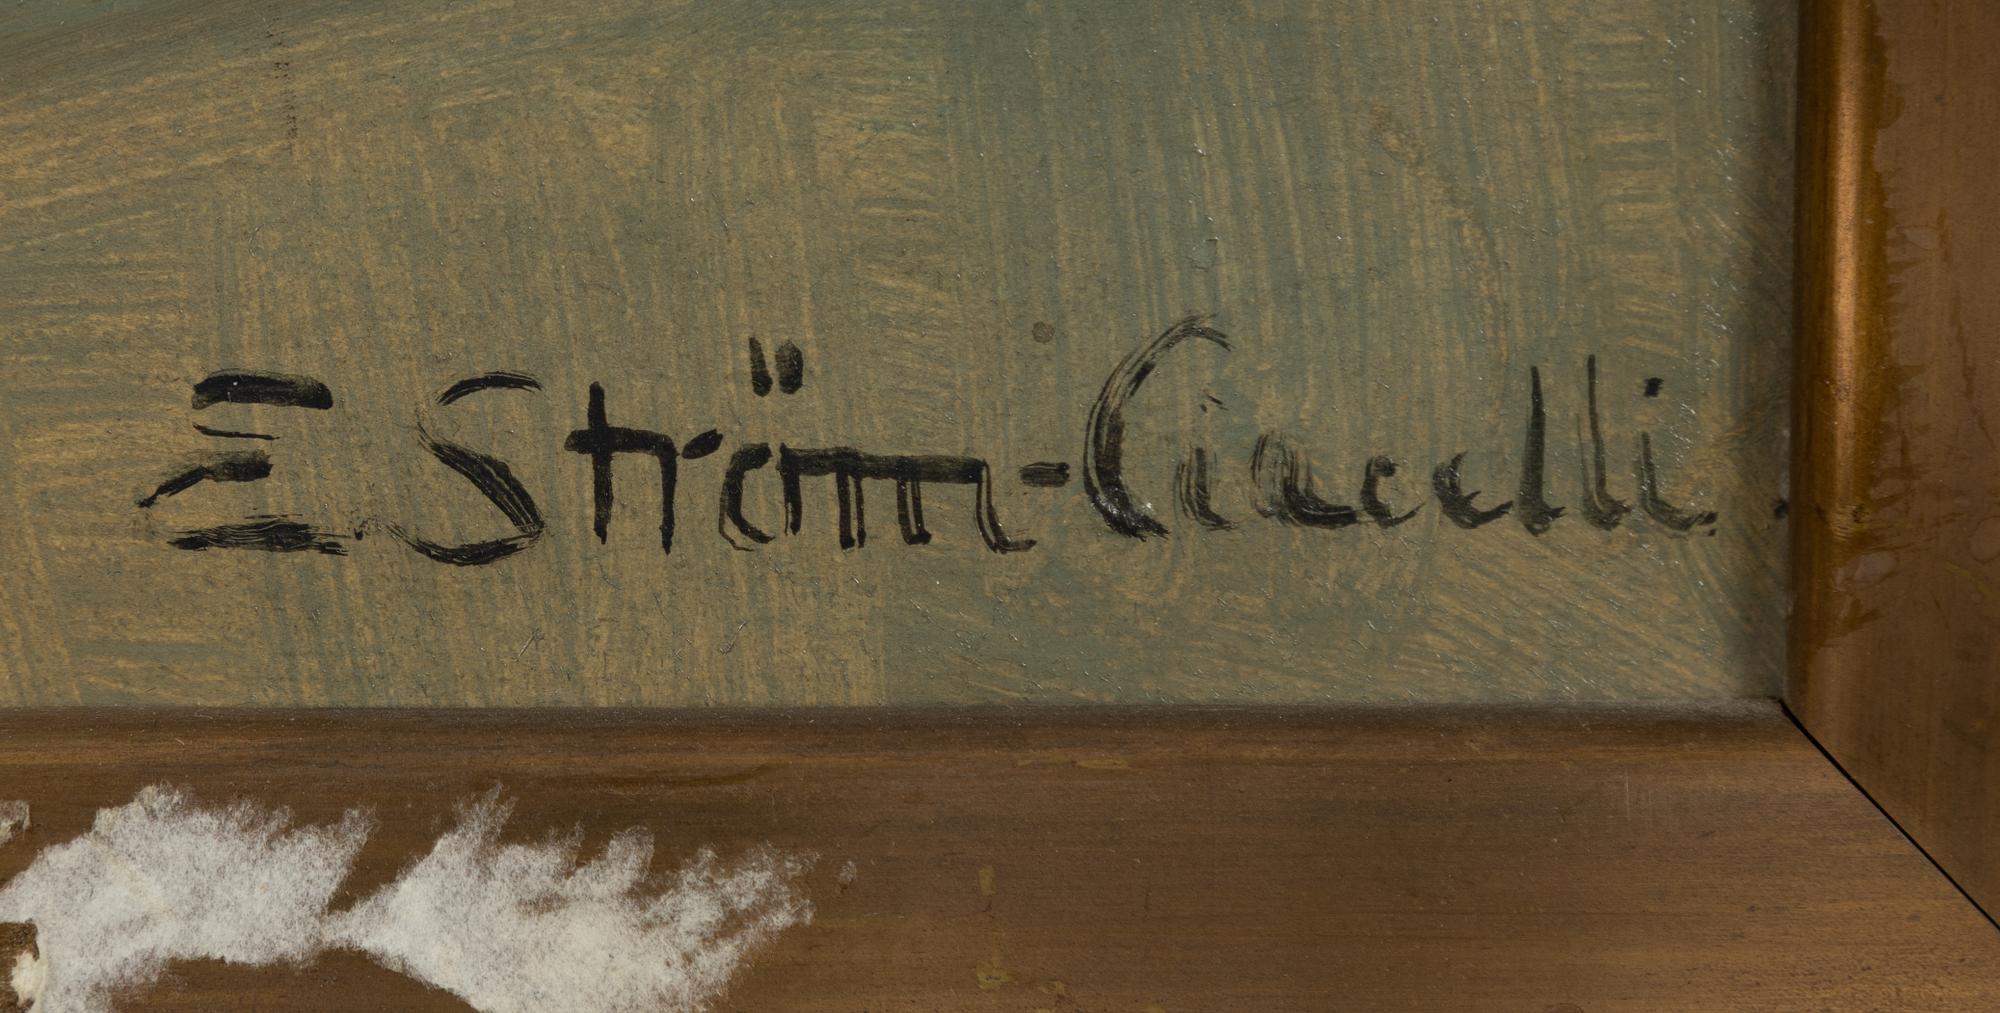 E Ström-Ciacelli.